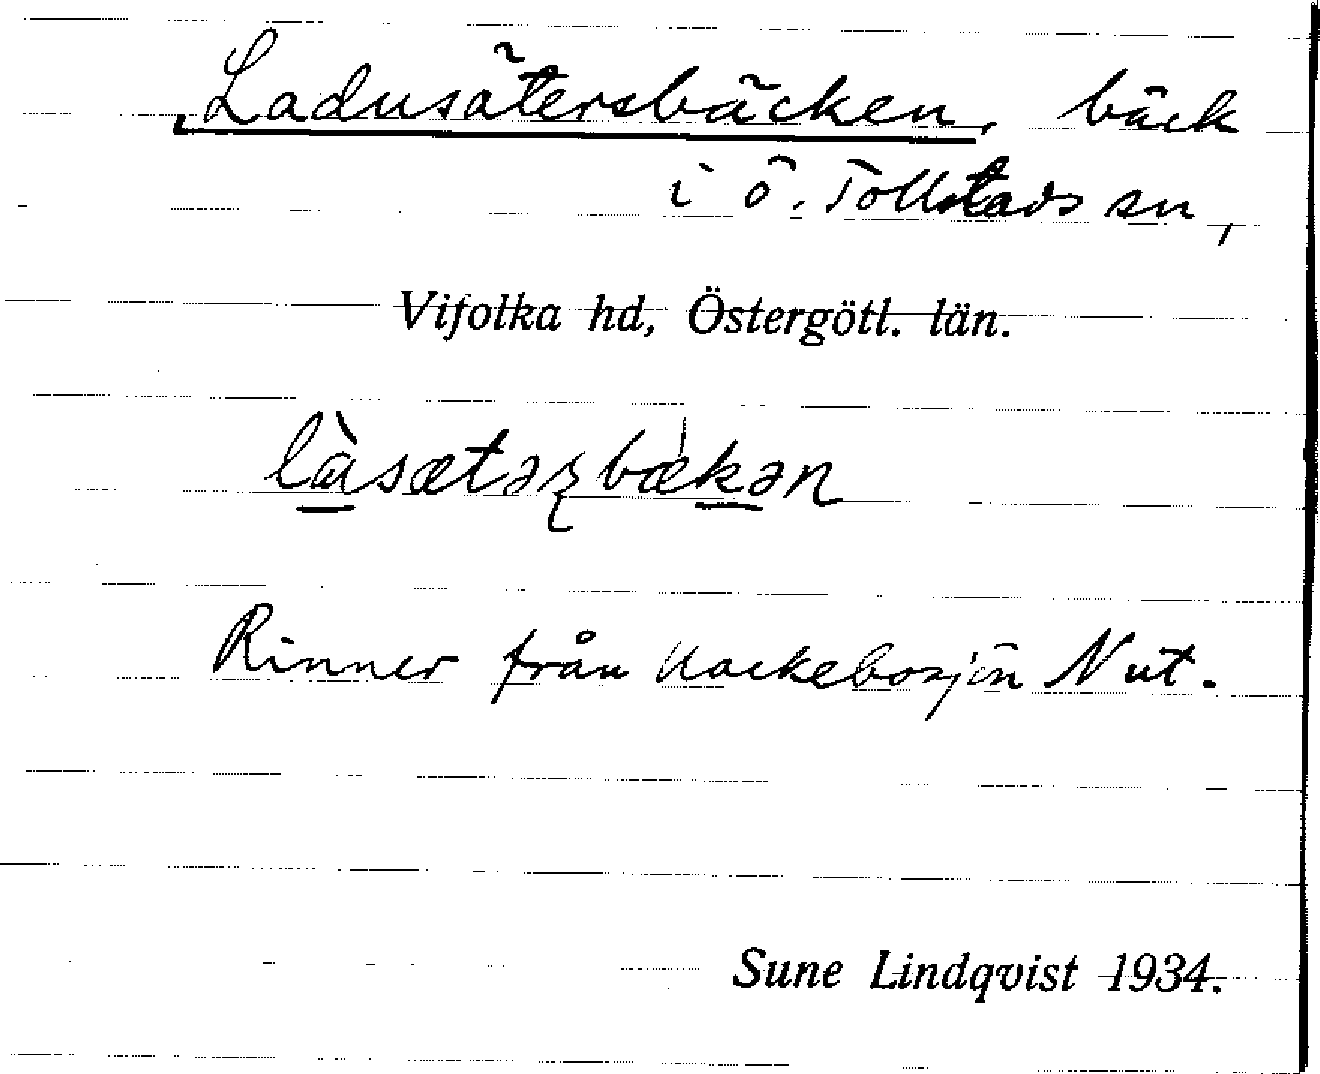 Ladusätersbäcken, bäck
i Ö. Tollstads sn,
Vifolka hd, Östergötl. län.
là̱sætəʂbæ̍ḵən
Rinner från Hackebosjön N ut.
Sune Lindqvist 1934.